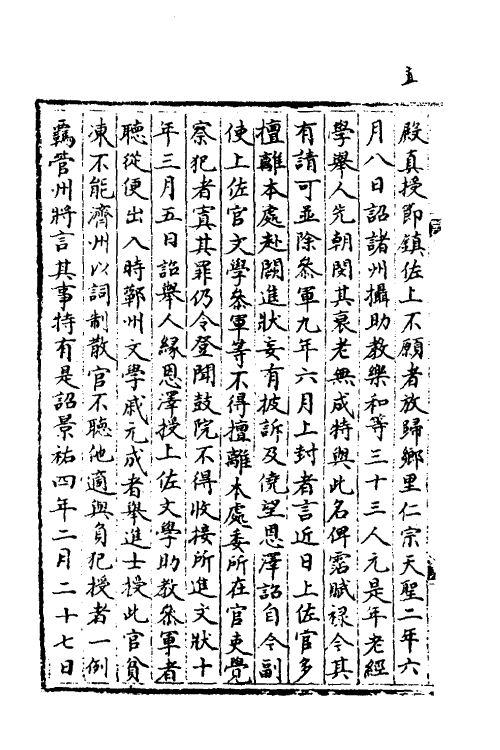 五
殿真授節鎮佐上不願者放歸鄉里仁宗天聖二年六
月八日詔諸州攝助教樂和等三十三人元是年老經
學舉人先朝閔其衰老無成特與此名俾霑賦祿今其
有請可並除參軍九年六月上封者言近日上佐官多
擅離本處赴闕進狀妄有披訴及僥望恩澤詔自今副
使上佐官文學參軍等不得擅離本處委所在官吏覺
察犯者寘其罪仍令登聞鼓院不得收接所進文狀十
年三月五日詔舉人緣恩澤授上佐文學助教參軍者
聽從便出入時鄆州文學戚元成者舉進士授此官貧
凍不能濟州以詞制散官不聽他適與負犯授者一例
羈管州將言其事特有是詔景祐四年二月二十七日